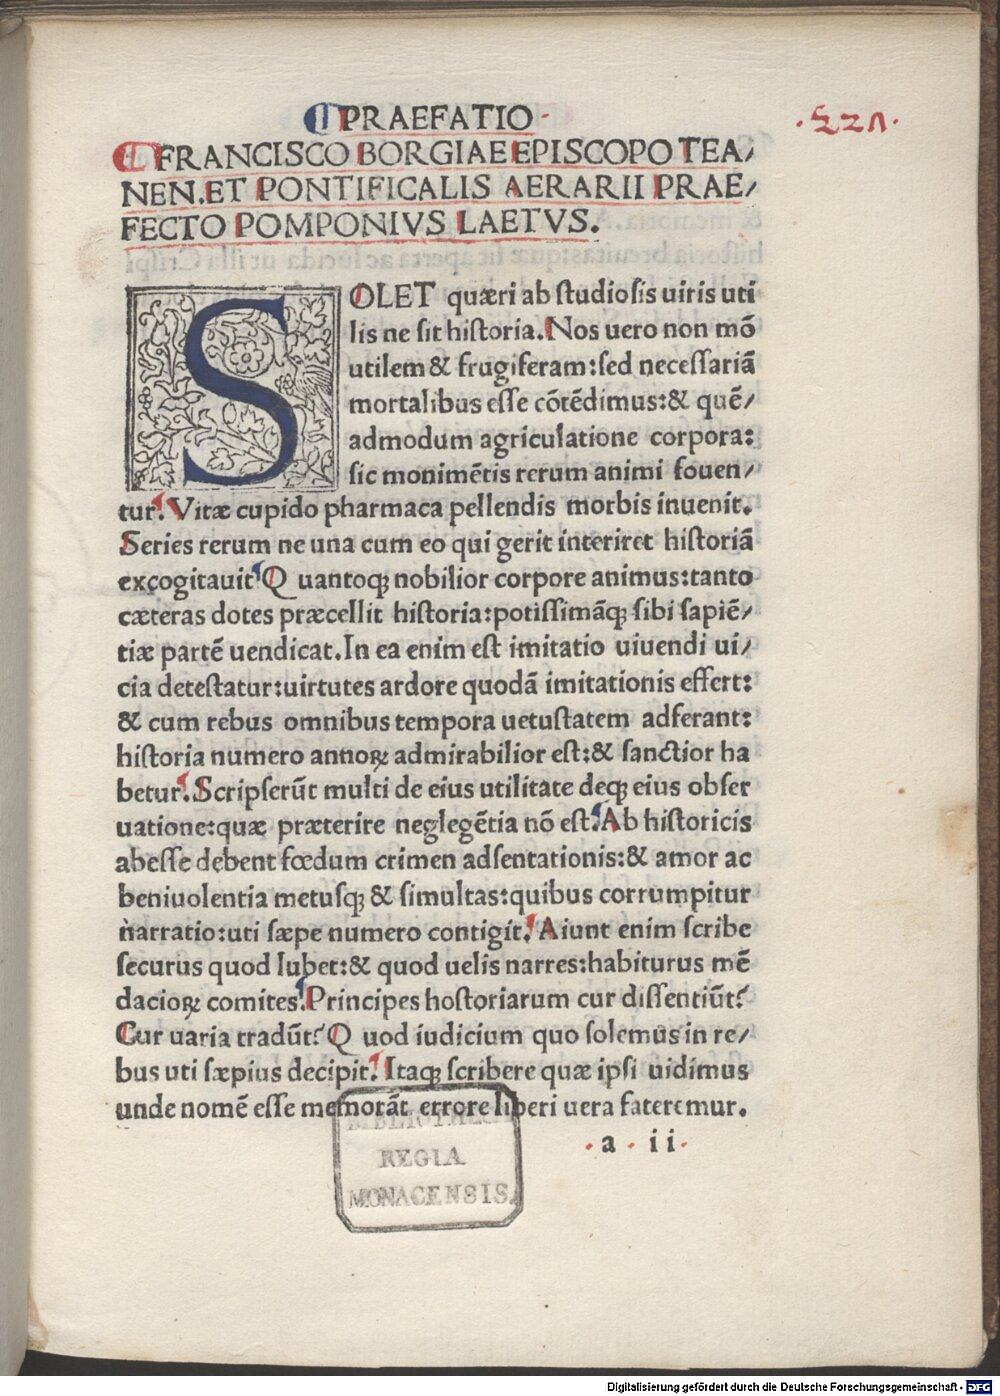 PRAEFATIO
FRANCISCO BORGIAE EPISCOPO TEA/
NEN.ET PONTIFICALIS AERARII PRAE/
FECTO POMPONIVS LAETVS.
SOLET quæri ab studiosis uiris uti
lis ne sit historia. Nos uero non mō
utilem & frugiferam:sed necessariā
mortalibus esse cōtēdimus:& quē/
admodum agriculatione corpora:
sic monimētis rerum animi fouen/
tur. Vitæ cupido pharmaca pellendis morbis inuenit.
Series rerum ne una cum eo qui gerit interiret historiā
excogitauit Q uantoqꝫ nobilior corpore animus:tanto
cæteras dotes præcellit historia:potissimāqꝫ sibi sapiē/
tiæ partē uendicat.In ea enim est imitatio uiuendi ui/
cia detestatur:uirtutes ardore quodā imitationis effert:
& cum rebus omnibus tempora uetustatem adferant:
historia numero annoꝝ admirabilior est:& sanctior ha
betur. Scripserūt multi de eius utilitate deqꝫ eius obser
uatione:quæ præterire neglegētia nō est. Ab historicis
abesse debent fœdum crimen adsentationis:& amor ac
beniuolentia metusqꝫ & simultas:quibus corrumpitur
narratio:uti sæpe numero contigit. Aiunt enim scribe
securus quod lubet:& quod uelis narres:habiturus mē
dacioꝝ comites. Principes hostoriarum cur dissentiūt?
Cur uaria tradūt? Q uod iudicium quo solemus in re/
bus uti sæpius decipit. Itaqꝫ scribere quæ ipsi uidimus
unde nomē esse memorāt errore liberi uera fateremur.
a ii
BIBLIOTHECA
REGIA
MONACENSIS.
Digitalisierung gefördert durch die Deutsche Forschungsgemeinschaft - DFG